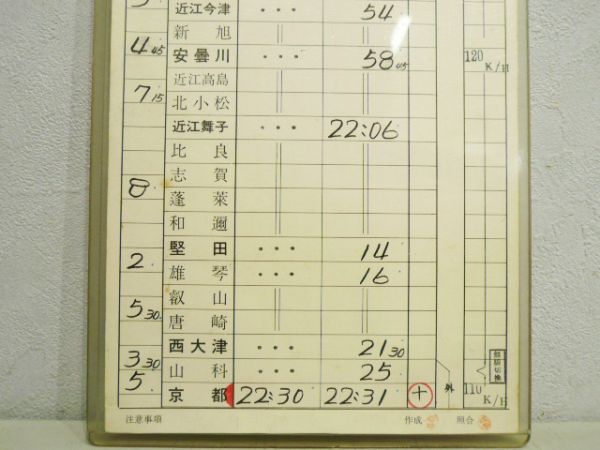 近江今津 ・・・ 54
新旭 || ||
4 45 安曇川 ・・・ 58 45 120 K/H
近江高島 || ||
7 15 北小松 || ||
近江舞子 ・・・ 22:06
比良 || ||
志賀 || ||
8 蓬莱 || ||
和邇 || ||
堅田 ・・・ 14
2 雄琴 ・・・ 16
叡山 || ||
5 30 唐崎 || ||
西大津 ・・・ 21 30
3 30 山科 ・・・ 25
5 京都 22:30 22:31 十 外 110 K/H
注意事項 作成 照合